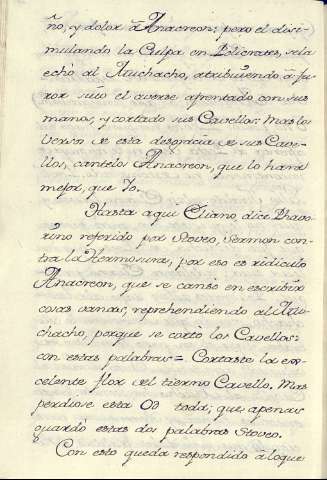 ño, y dolor â Anacreon: pero el disi-
mulando la Culpa en Policrates, sela
echò al Muchacho, atribuiendo â fu-
ror suio el averse afrentado con sus
manos, y cortado sus Cavellos: Mas los
Versos de esta desgracia de sus Cave-
llos, cantelos Anacreon, que lo harà
mejor, que Yo.
Hasta aqui Eliano, dice Phavo-
rino referido por Stoveo, Sermon con-
tra la Hermosura, por eso es ridiculo
Anacreon, que se cansò en escribir
cosas vanas, reprehendiendo al Mu-
chacho, porque se cortò los Cavellos:
con estas palabras= Cortaste la exe-
celente flor del tierno Cavello. Mas
perdiose esta Od toda, que apenas
guardò estas dos palabras Stoveo.
Con esto queda respondido â loque